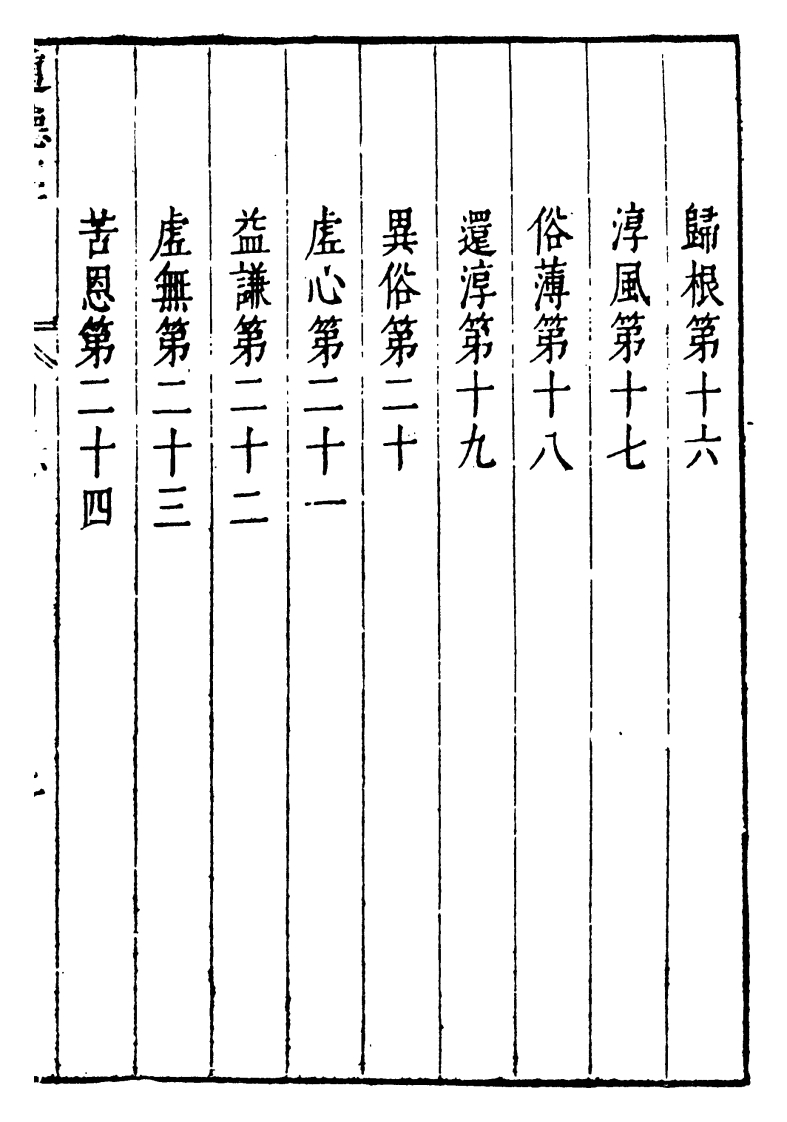 歸根第十六
淳風第十七
俗薄第十八
還淳第十九
異俗第二十
虗心第二十一
益謙第二十二
虗無第二十三
苦恩第二十四